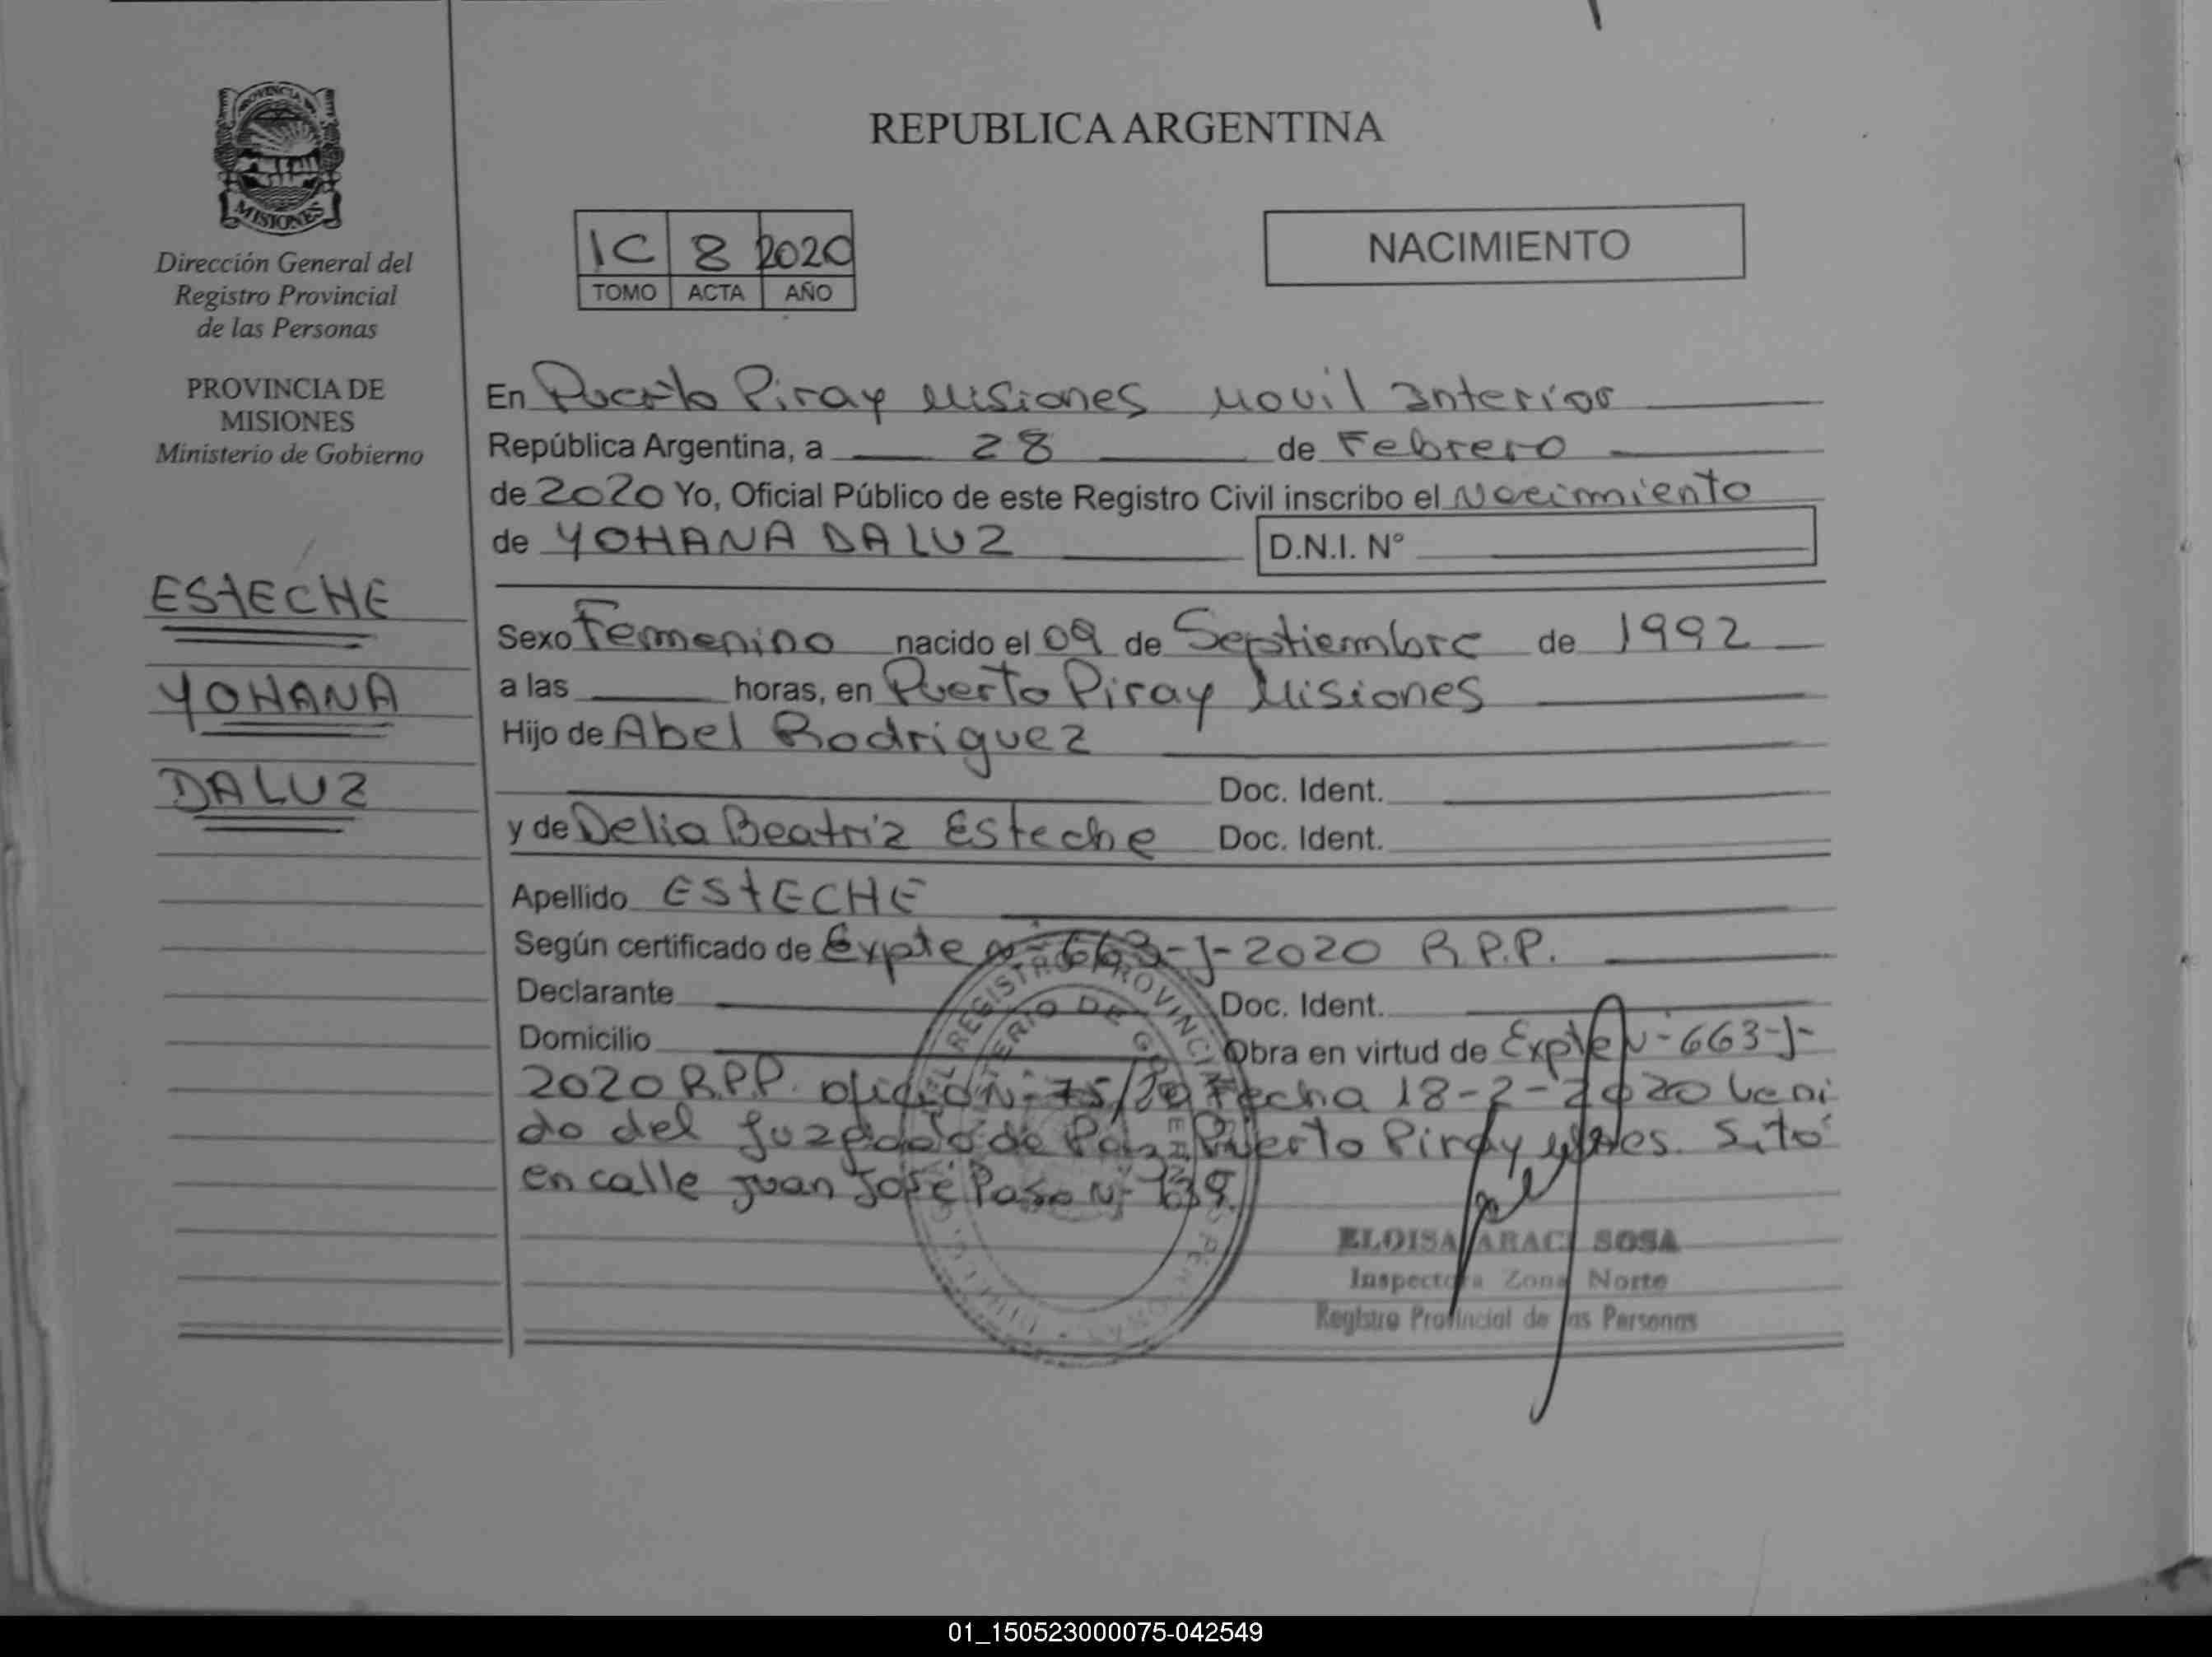 PROVINCIA
MISIONES
Dirección General del
Registro Provincial
de las Personas
PROVINCIA DE
MISIONES
Ministerio de Gobierno
ESTECHE
YOHANA
DALUZ
REPUBLICA ARGENTINA
1C 8 2020
TOMO ACTA AÑO
NACIMIENTO
En Puerto Piray Misiones Movil Interior
República Argentina, a 28 de Febrero
de 2020 Yo, Oficial Público de este Registro Civil inscribo el Nacimiento
de YOHANA DALUZ D.N.I. N°
Sexo Femenino nacido el 09 de Septiembre de 1992
a las horas, en Puerto Piray Misiones
Hijo de Abel Rodriguez
Doc. Ident.
y de Delia Beatriz Esteche Doc. Ident.
Apellido ESTECHE
Según certificado de Expte N- 663-J-2020 R.P.P.
Declarante Doc. Ident.
Domicilio Obra en virtud de Expte N-663-J-
2020 R.P.P. oficio N- 75/20 Fecha 18-2-2020 veni
do del Juzgado de Paz Puerto Piray Mnes. Sito
en calle Juan José Paso N- 139
ELOISA ARACI SOSA
Inspectora Zona Norte
Registro Provincial de las Personas
01_150523000075-042549